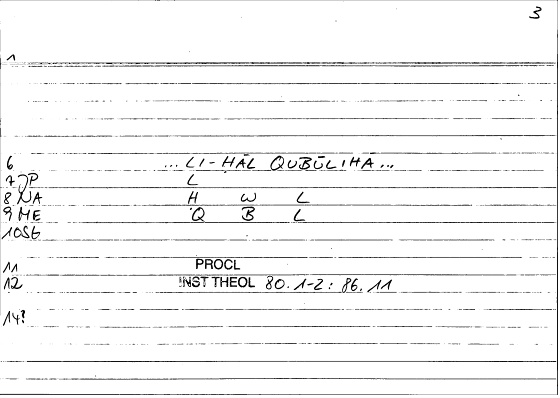 3
1
6 ...LI-HĀL QUBŪLIHĀ...
7 JP L
8 NA H W L
9 ME Q B L
10SG
11 PROCL
12 INST THEOL 80.1-2: 86.11
14?